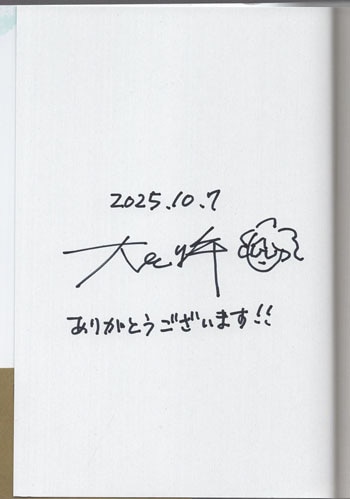 2025.10.7
ありがとうございます!!